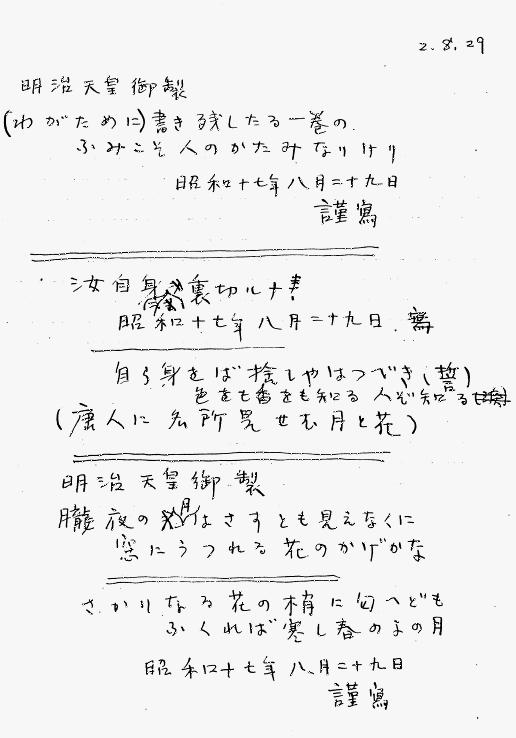 2.8.29
明治天皇御製
(わがために)書き残したる一巻の
ふみこそ人のかたみなりけり
昭和十七年八月二十九日
謹寫
汝自身を裏切ルナ!
昭和十七年八月二十九日 寫
自ら身をば捨しやはつべき(誓)
色をも香をも知る人ぞ知る
(唐人に名所見せむ月と花)
明治天皇御製
朧夜の月はさすとも見えなくに
窓にうつれる花のかげかな
さかりなる花の梢に匂へども
ふくれば寒し春のよの月
昭和十七年八月二十九日
謹寫